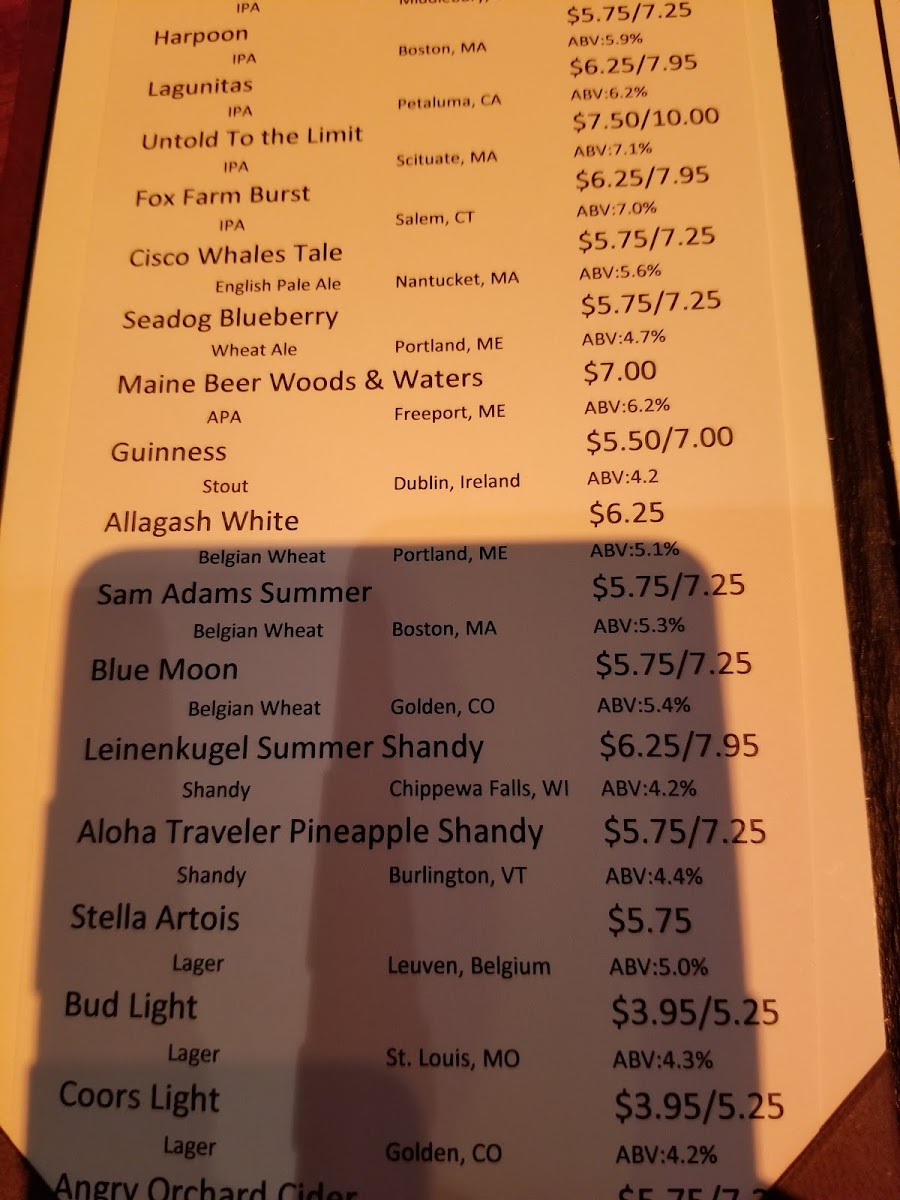 IPA
Harpoon $5.75/7.25
IPA Boston, MA ABV:5.9%
Lagunitas $6.25/7.95
IPA Petaluma, CA ABV:6.2%
Untold To the Limit $7.50/10.00
IPA Scituate, MA ABV:7.1%
Fox Farm Burst $6.25/7.95
IPA Salem, CT ABV:7.0%
Cisco Whales Tale $5.75/7.25
English Pale Ale Nantucket, MA ABV:5.6%
Seadog Blueberry $5.75/7.25
Wheat Ale Portland, ME ABV:4.7%
Maine Beer Woods & Waters $7.00
APA Freeport, ME ABV:6.2%
Guinness $5.50/7.00
Stout Dublin, Ireland ABV:4.2
Allagash White $6.25
Belgian Wheat Portland, ME ABV:5.1%
Sam Adams Summer $5.75/7.25
Belgian Wheat Boston, MA ABV:5.3%
Blue Moon $5.75/7.25
Belgian Wheat Golden, CO ABV:5.4%
Leinenkugel Summer Shandy $6.25/7.95
Shandy Chippewa Falls, WI ABV:4.2%
Aloha Traveler Pineapple Shandy $5.75/7.25
Shandy Burlington, VT ABV:4.4%
Stella Artois $5.75
Lager Leuven, Belgium ABV:5.0%
Bud Light $3.95/5.25
Lager St. Louis, MO ABV:4.3%
Coors Light $3.95/5.25
Lager Golden, CO ABV:4.2%
Angry Orchard Cider